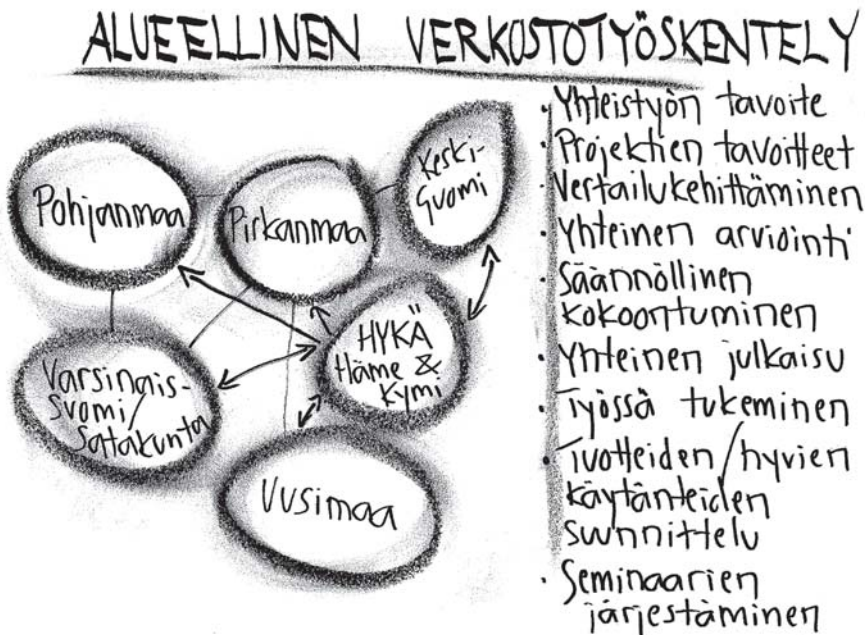 ALUEELLINEN VERKOSTOTYÖSKENTELY
Pohjanmaa
Pirkanmaa
Keski-
Suomi
HYKÄ
Häme &
Kymi
Varsinais-
Suomi/
Satakunta
Uusimaa
• Yhteistyön tavoite
• Projektien tavoitteet
• Vertailukehittäminen
• Yhteinen arviointi
• Säännöllinen
kokoontuminen
• Yhteinen julkaisu
• Työssä tukeminen
• Tuotteiden/hyvien
käytänteiden
suunnittelu
• Seminaarien
järjestäminen